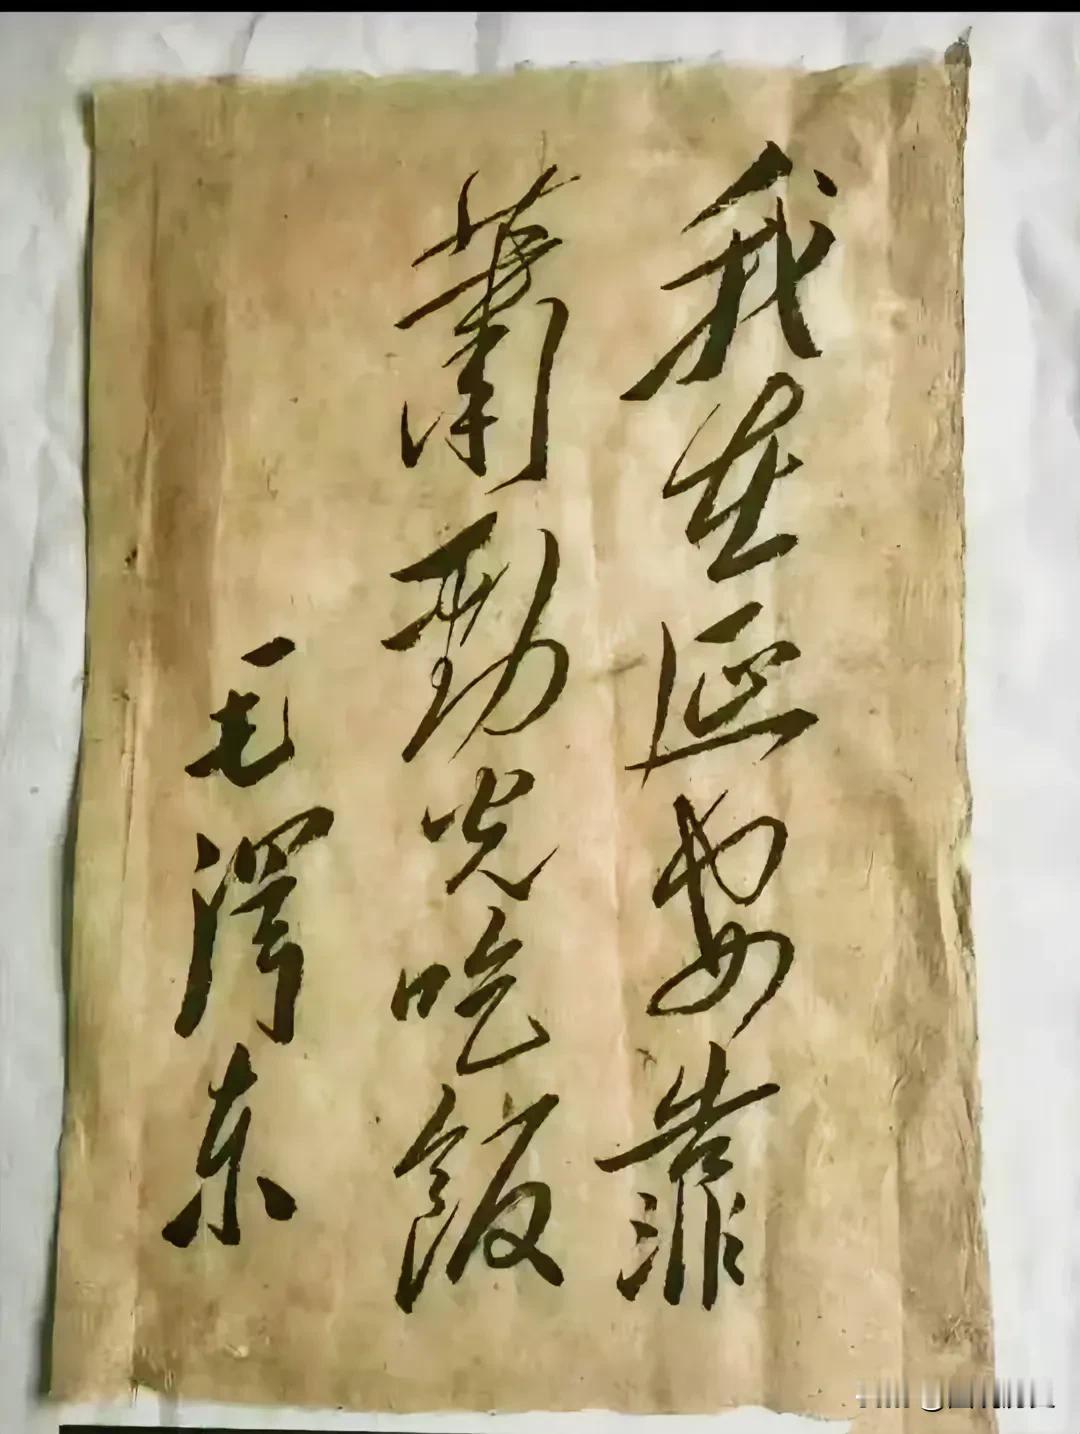 我在延安靠
萧劲光吃饭
毛泽东